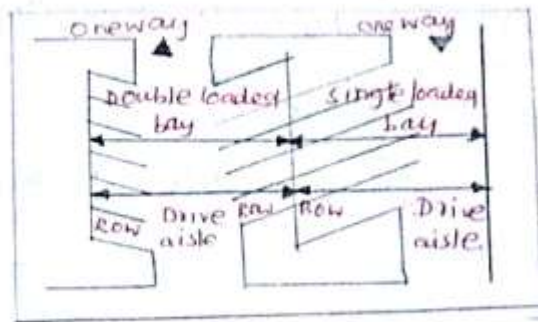 oneway
oneway
Double loaded
bay
single loaded
bay
ROW
Drive
aisle
ROW
ROW
Drive
aisle